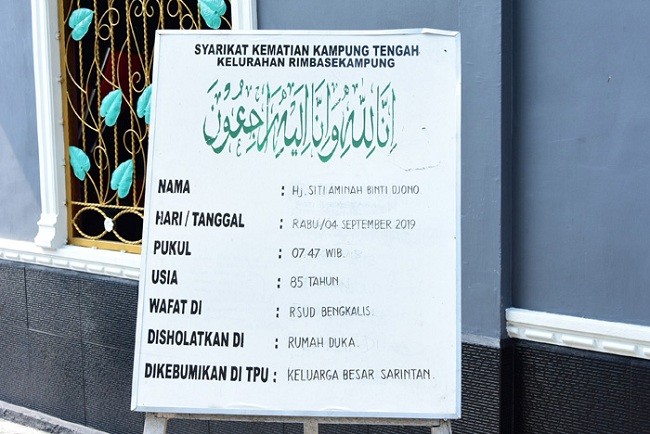 SYARIKAT KEMATIAN KAMPUNG TENGAH
KELURAHAN RIMBASEKAMPUNG
إِنَّا لِلّٰهِ وَإِنَّا إِلَيْهِ رَاجِعُوْنَ
NAMA : Hj. SITI AMINAH BINTI DJONO.
HARI / TANGGAL : RABU/04 SEPTEMBER 2019
PUKUL : 07.47 WIB.
USIA : 85 TAHUN.
WAFAT DI : RSUD BENGKALIS.
DISHOLATKAN DI : RUMAH DUKA.
DIKEBUMIKAN DI TPU : KELUARGA BESAR SARINTAN.